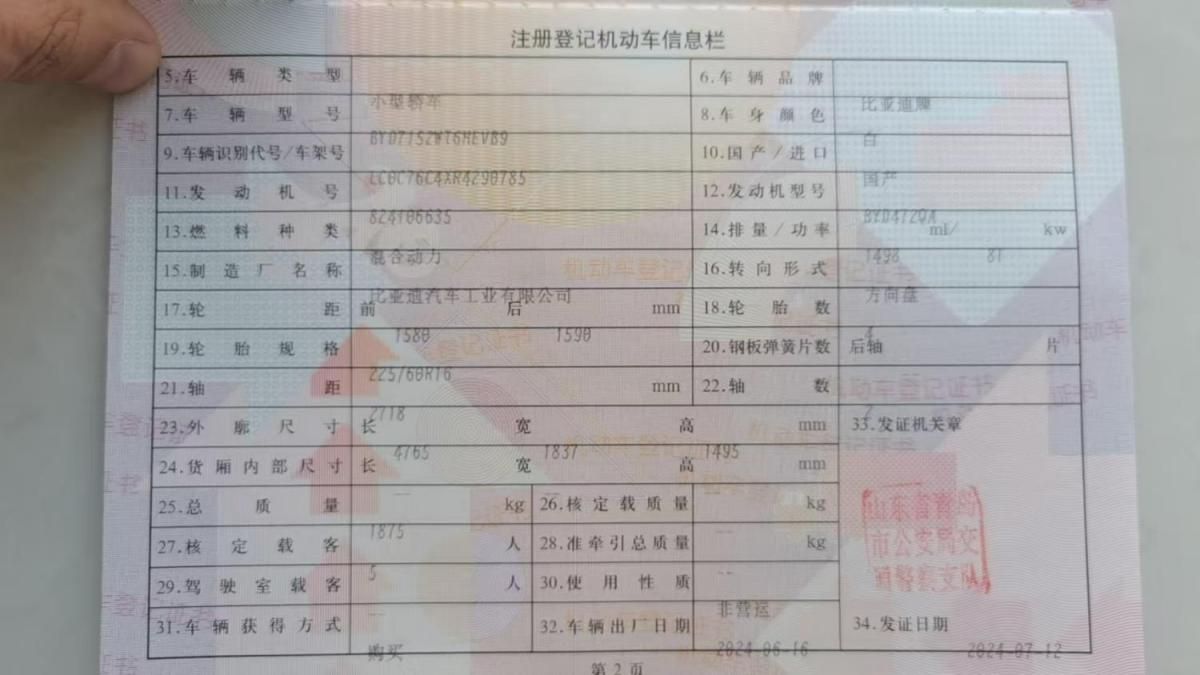 注册登记机动车信息栏
5.车辆类型 小型轿车 6.车辆品牌 比亚迪牌
7.车辆型号 BYD7152WT6HEVB9 8.车身颜色 白
9.车辆识别代号/车架号 LC0C76C4XR4290785 10.国产/进口 国产
11.发动机号 824106635 12.发动机型号 BYD472QA
13.燃料种类 混合动力 14.排量/功率 1498 ml/ 81 kw
15.制造厂名称 比亚迪汽车工业有限公司 16.转向形式 方向盘
17.轮距 前 1580 后 1590 mm 18.轮胎数 4
19.轮胎规格 225/60R16 20.钢板弹簧片数 后轴 片
21.轴距 2718 mm 22.轴数 2
23.外廓尺寸 长 4765 宽 1837 高 1495 mm 33.发证机关章
24.货厢内部尺寸 长 -- 宽 -- 高 -- mm
25.总质量 1875 kg 26.核定载质量 -- kg
27.核定载客 5 人 28.准牵引总质量 -- kg
山东省青岛
市公安局交
通警察支队
29.驾驶室载客 -- 人 30.使用性质 非营运
31.车辆获得方式 购买 32.车辆出厂日期 2024-06-16 34.发证日期 2024-07-12
第2页